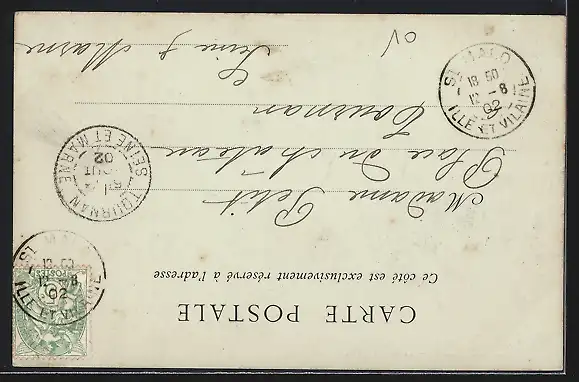 CARTE POSTALE
Ce côté est exclusivement réservé à l'adresse
Madame Petit
Place du château
Tournan
Seine & Marne
ST MALO
18 50
12 - 8
02
ILLE ET VILAINE
TOURNAN
AOUT
02
SEINE ET MARNE
ST MALO
18 50
12 - 8
02
ILLE ET VILAINE
POSTES